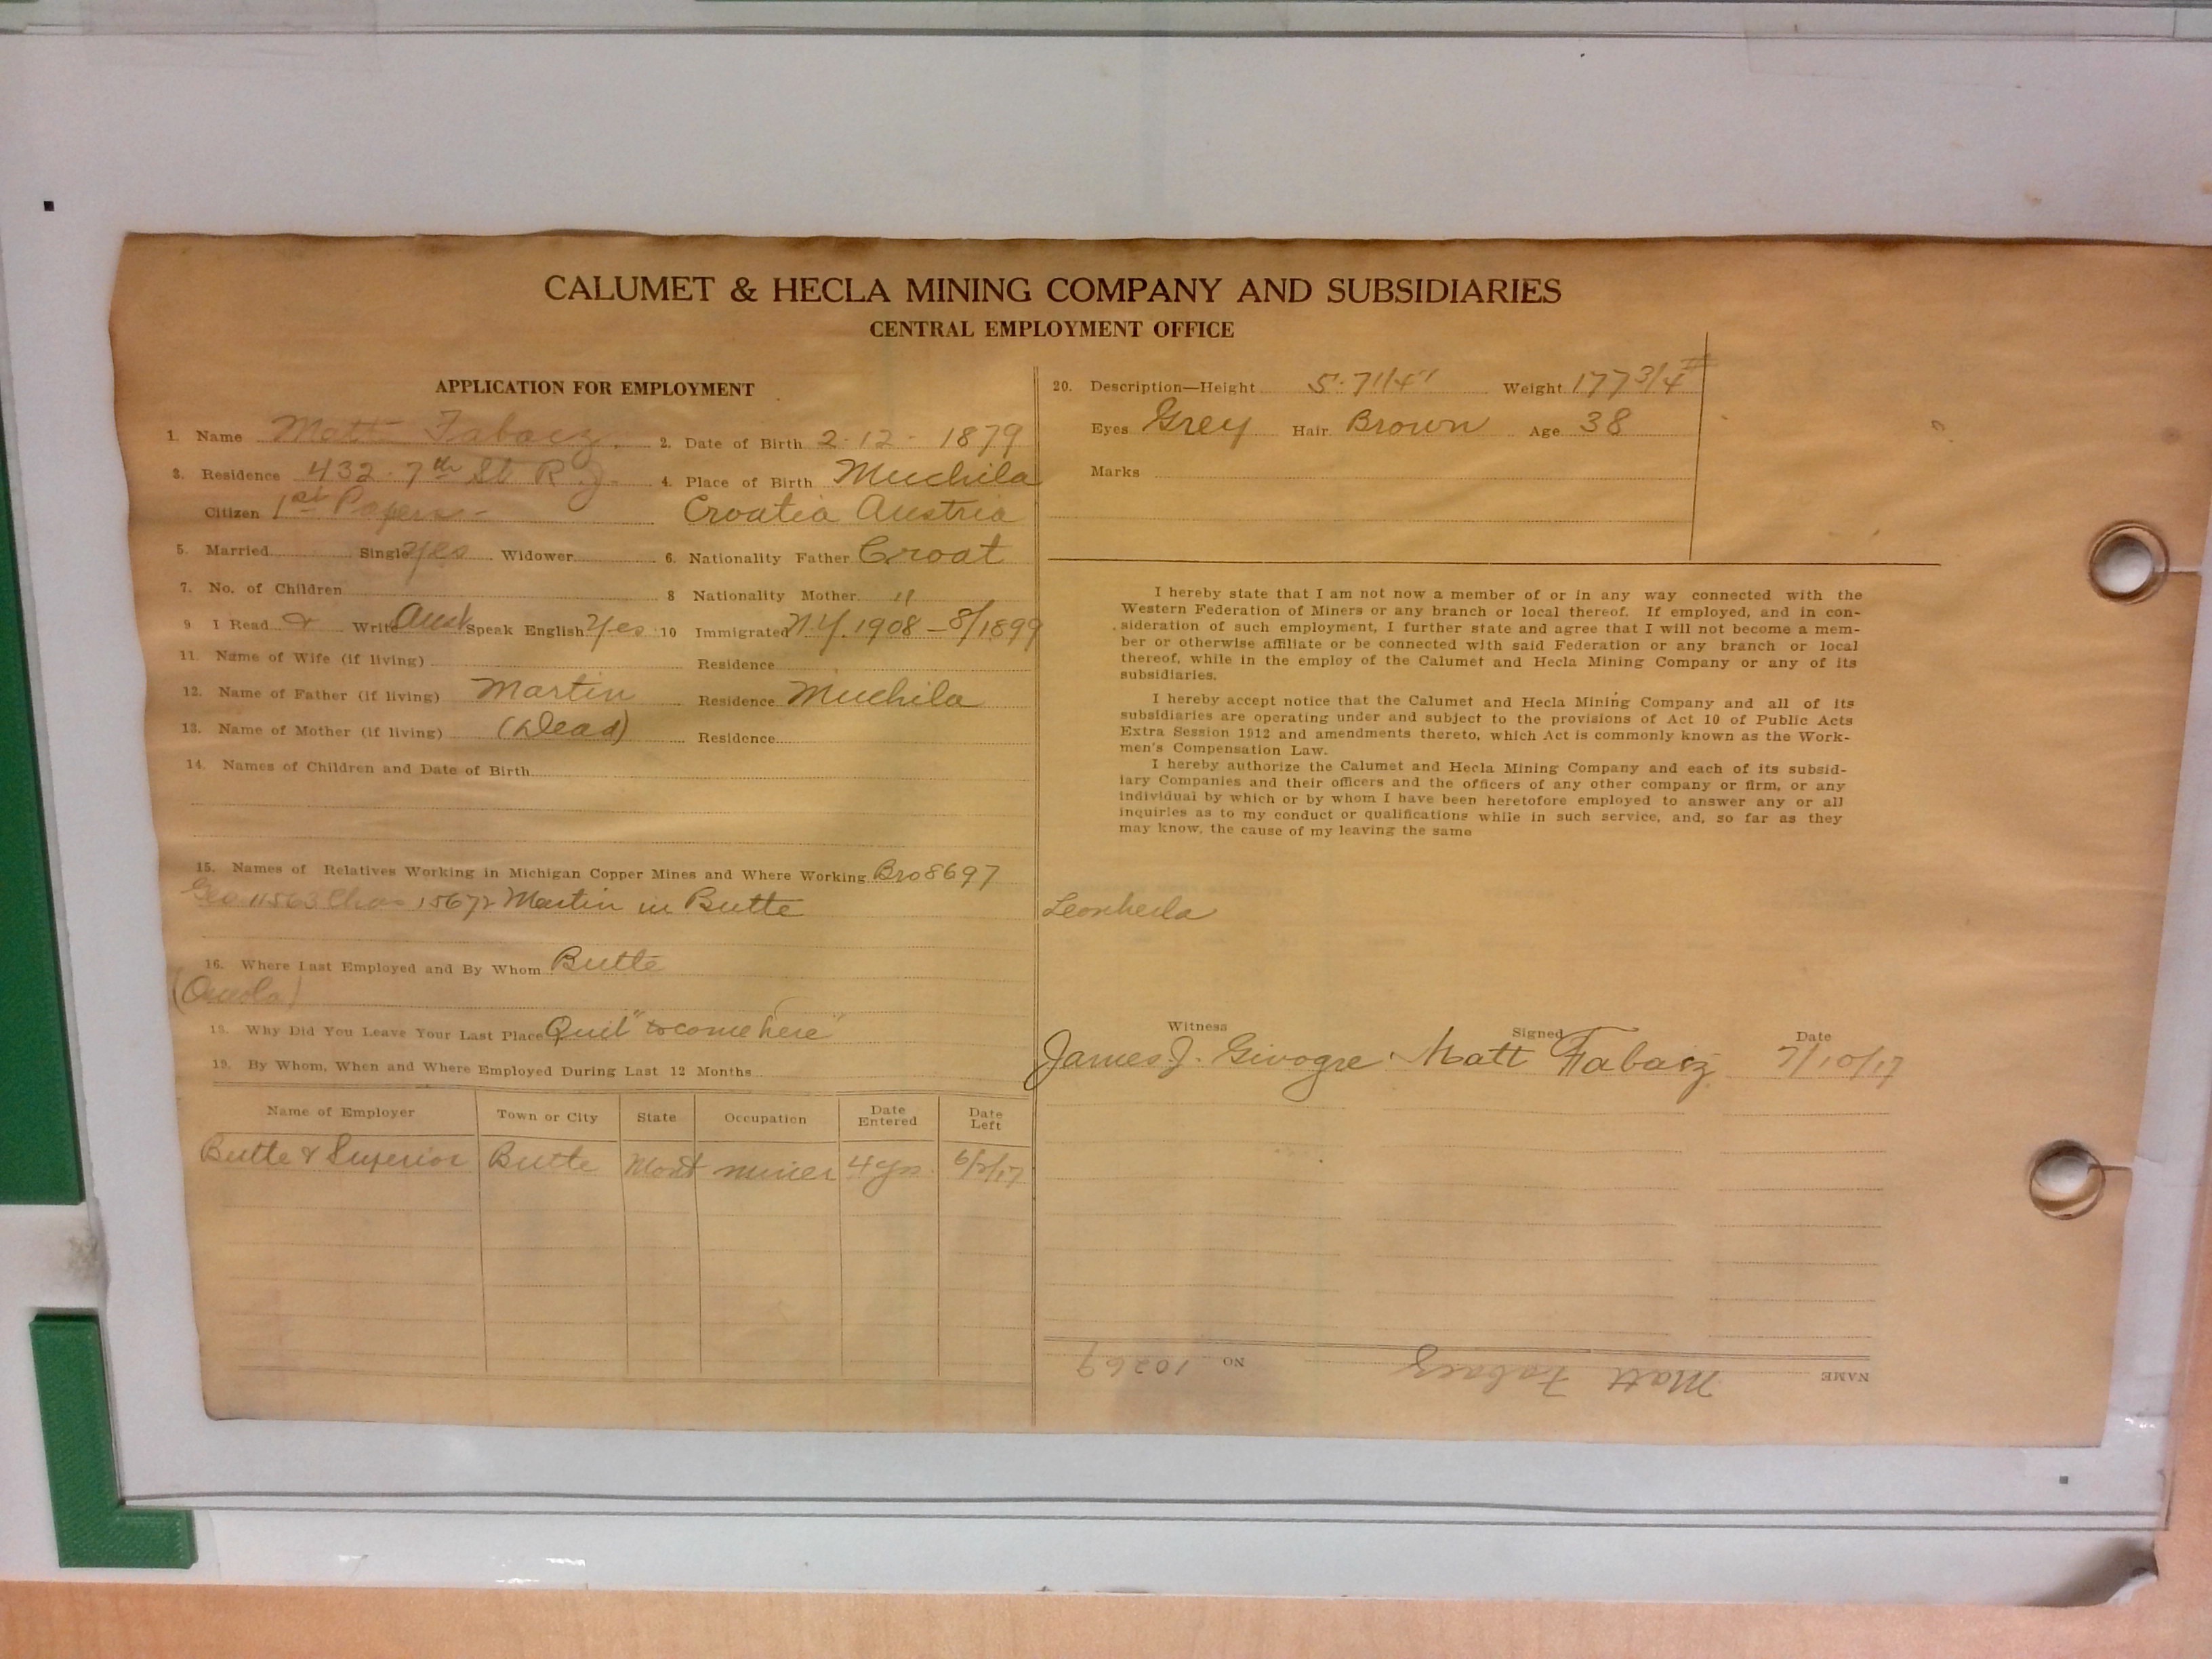 CALUMET & HECLA MINING COMPANY AND SUBSIDIARIES
CENTRAL EMPLOYMENT OFFICE
APPLICATION FOR EMPLOYMENT
1. Name Matt Fabacz. 2. Date of Birth 2-12-1879
3. Residence 432-7th St R.J. 4. Place of Birth Muchila
Citizen 1st Papers- Croatia Austria
5. Married Single Yes Widower 6. Nationality Father Croat
7. No. of Children 8 Nationality Mother "
9 I Read & Write Aust Speak English Yes 10 Immigrated N.Y. 1908-8/1899
11. Name of Wife (if living) Residence
12. Name of Father (if living) Martin Residence Muchila
13. Name of Mother (if living) (Dead) Residence
14. Names of Children and Date of Birth
15. Names of Relatives Working in Michigan Copper Mines and Where Working Bro 8697
Geo 11563 Chas 15672 Martin in Butte
16. Where Last Employed and By Whom Butte
(Osceola)
18. Why Did You Leave Your Last Place Quit "to come here"
19. By Whom, When and Where Employed During Last 12 Months
Name of Employer Town or City State Occupation Date Entered Date Left
Butte & Superior Butte Mont miner 4 yrs. 6/2/17
20. Description—Height 5-7 1/4" Weight 177 3/4 #
Eyes Grey Hair Brown Age 38
Marks
I hereby state that I am not now a member of or in any way connected with the
Western Federation of Miners or any branch or local thereof. If employed, and in con-
sideration of such employment, I further state and agree that I will not become a mem-
ber or otherwise affiliate or be connected with said Federation or any branch or local
thereof, while in the employ of the Calumet and Hecla Mining Company or any of its
subsidiaries.
I hereby accept notice that the Calumet and Hecla Mining Company and all of its
subsidiaries are operating under and subject to the provisions of Act 10 of Public Acts
Extra Session 1912 and amendments thereto, which Act is commonly known as the Work-
men's Compensation Law.
I hereby authorize the Calumet and Hecla Mining Company and each of its subsid-
iary Companies and their officers and the officers of any other company or firm, or any
individual by which or by whom I have been heretofore employed to answer any or all
inquiries as to my conduct or qualifications while in such service, and, so far as they
may know, the cause of my leaving the same
Witness Signed Date
James J. Givogre Matt Fabacz 7/10/17
NAME Matt Fabacz NO 10269